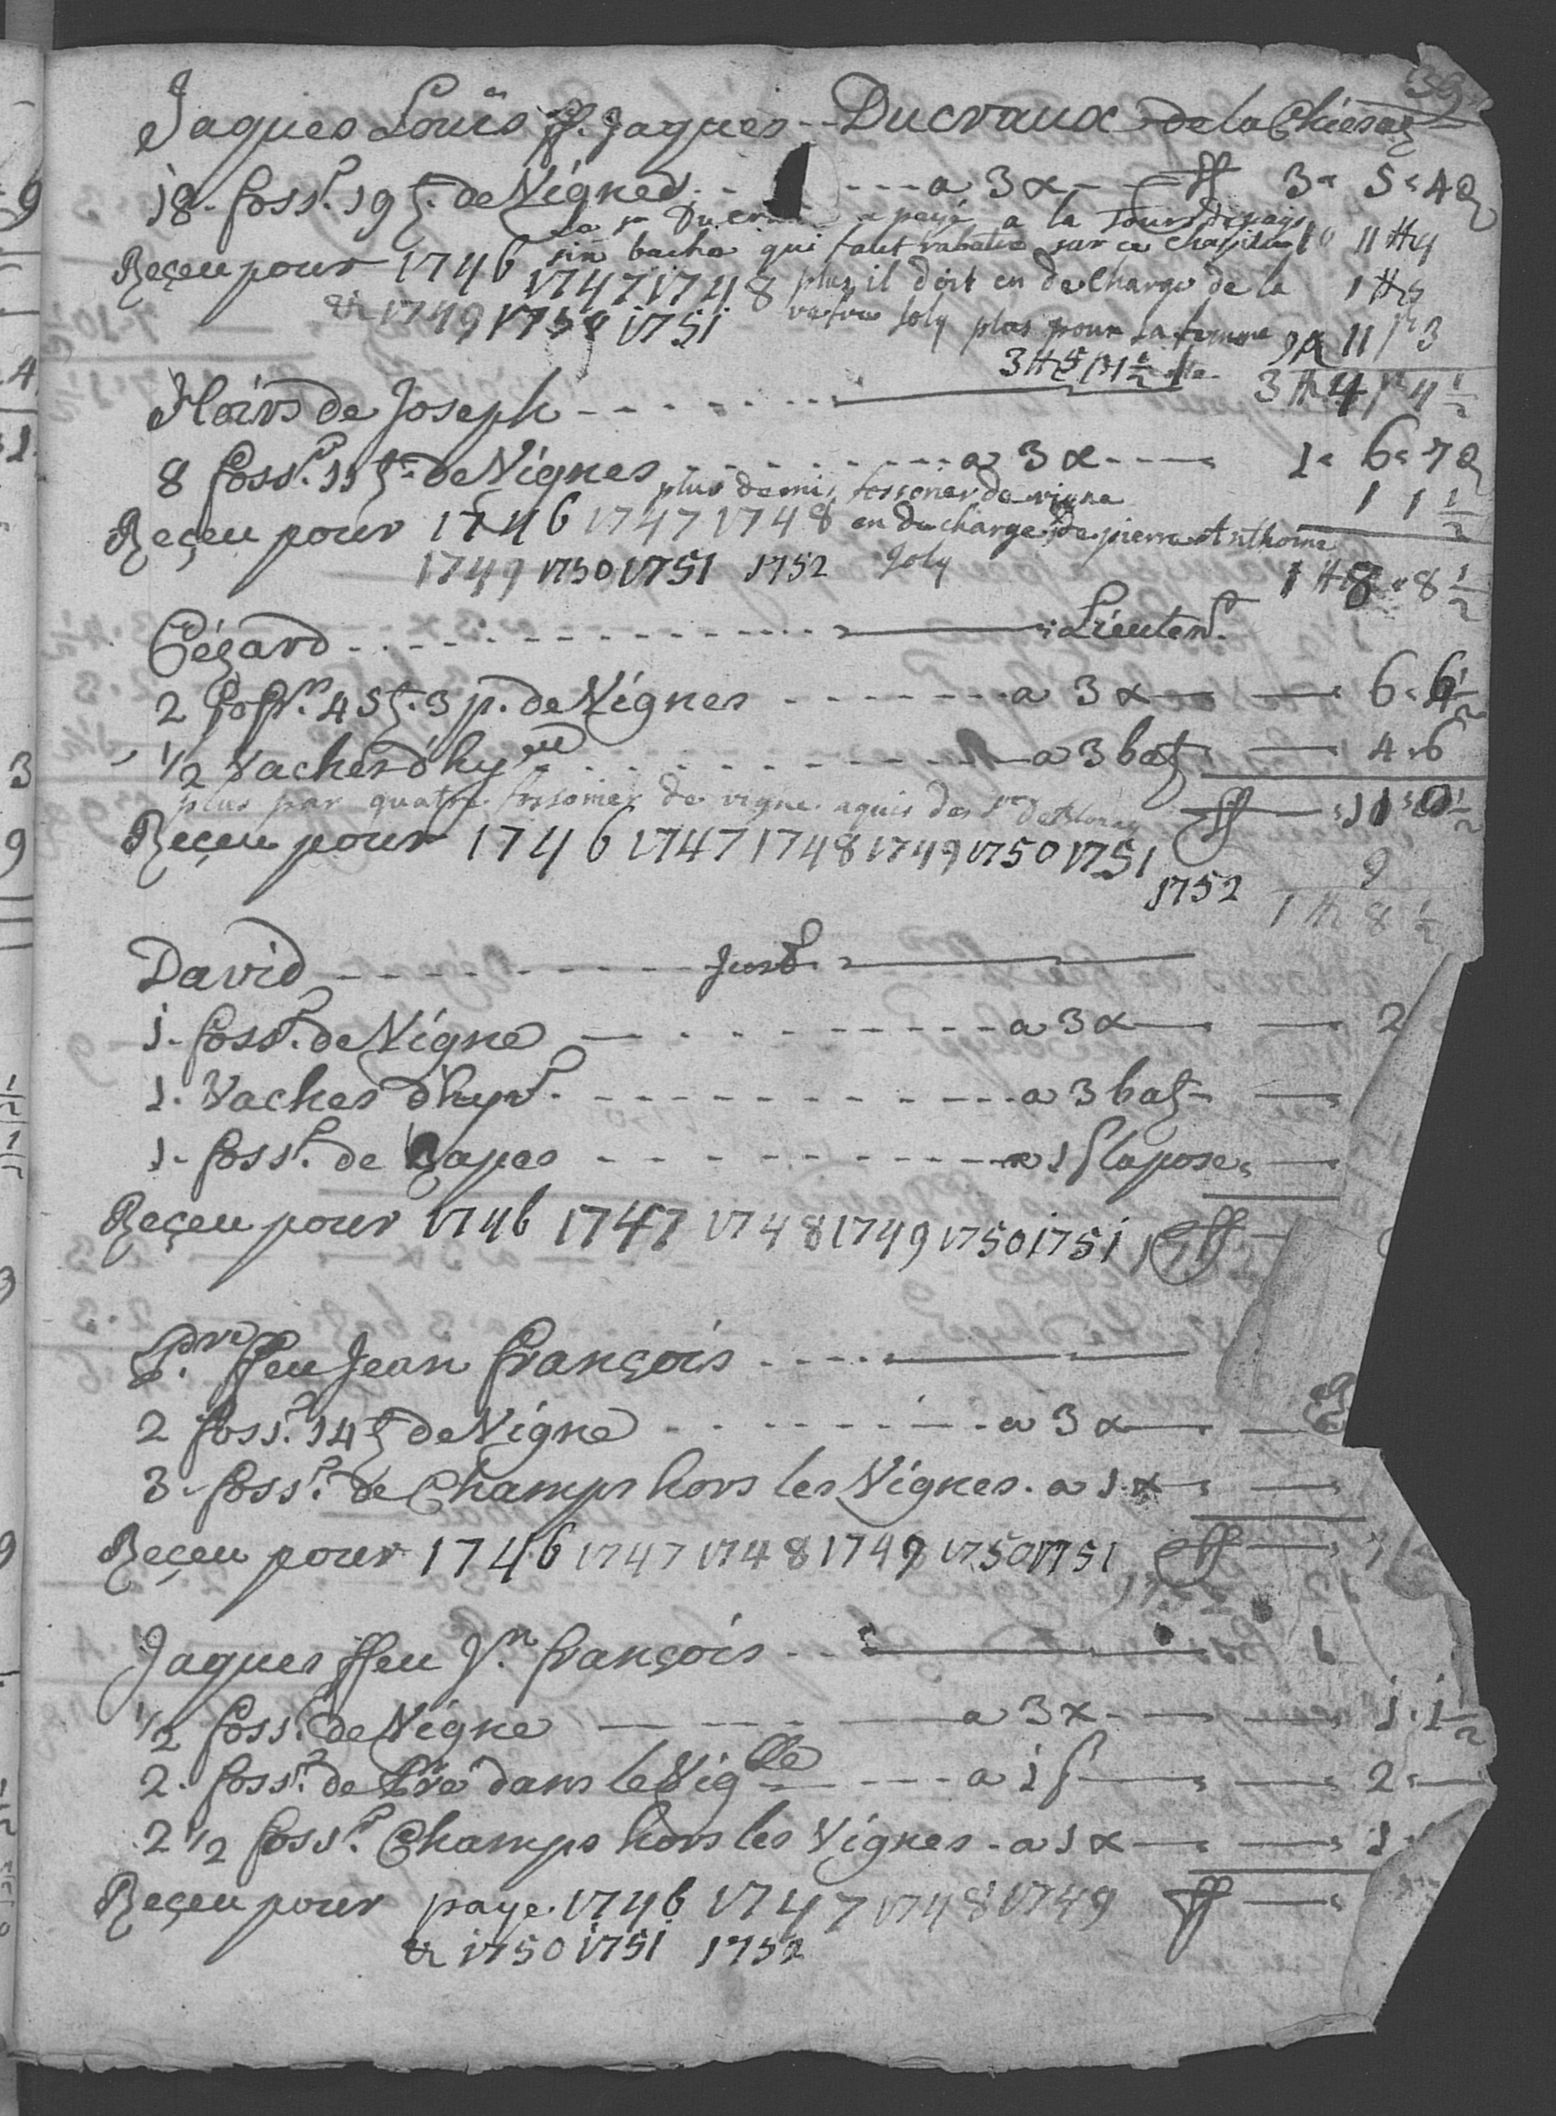 39
Jaques Louis ff. Jaques Ducraux de la Chiesaz
18. foss.r 19 t. de Vignes a 3 x ff 3 5 4
a payé a la Tour de pays
six bache qui faut rabatre sur ce chapitre 11
Reçeu pour 1746 1747 1748 plus il doit en decharge de la 1
& 1749 1750 1751 vefve Joly plus pour sa femme 11 3
3 5 1 1/2 3 4 4 1/2
Hoirs de Joseph
8 foss.r 11 t. de Vignes a 3 x 1 6 7
plus demis fossorier de vigne 1 1 1/2
Reçeu pour 1746 1747 1748 en decharge de pierre Anthoine
1749 1750 1751 1752 Joly 1 8 8 1/2
Cézard Lieuten.t
2 foss.r 4 t. 3 p. de Vignes a 3 x 6 6 1/2
1/2 Vaches d'hy a 3 batz 4 6
plus par quatre fossorier de vigne aquis des ff 11 1/2
Reçeu pour 1746 1747 1748 1749 1750 1751 9
1752 1 8 1/2
David Just.
1. foss.r de Vigne a 3 x 2
1. Vaches d'hyv. a 3 batz
1. foss.r de Rapes a 1 f la pose
Reçeu pour 1746 1747 1748 1749 1750 1751 ff
P.re ffeu Jean françois
2 foss.r 14 t de Vigne a 3 x
3. foss.r de Champs hors les Vignes. a 1 x
Reçeu pour 1746 1747 1748 1749 1750 1751 ff
Jaques ffeu J.n françois
1/2 foss.r de Vigne a 3 x 1. 1 1/2
2. foss.r de Pré dans le Vig.ble a 1 f 2
2 1/2 foss.r Champs hors les Vignes a 1 x 1
Reçeu pour paye 1746 1747 1748 1749 ff
& 1750 1751 1752